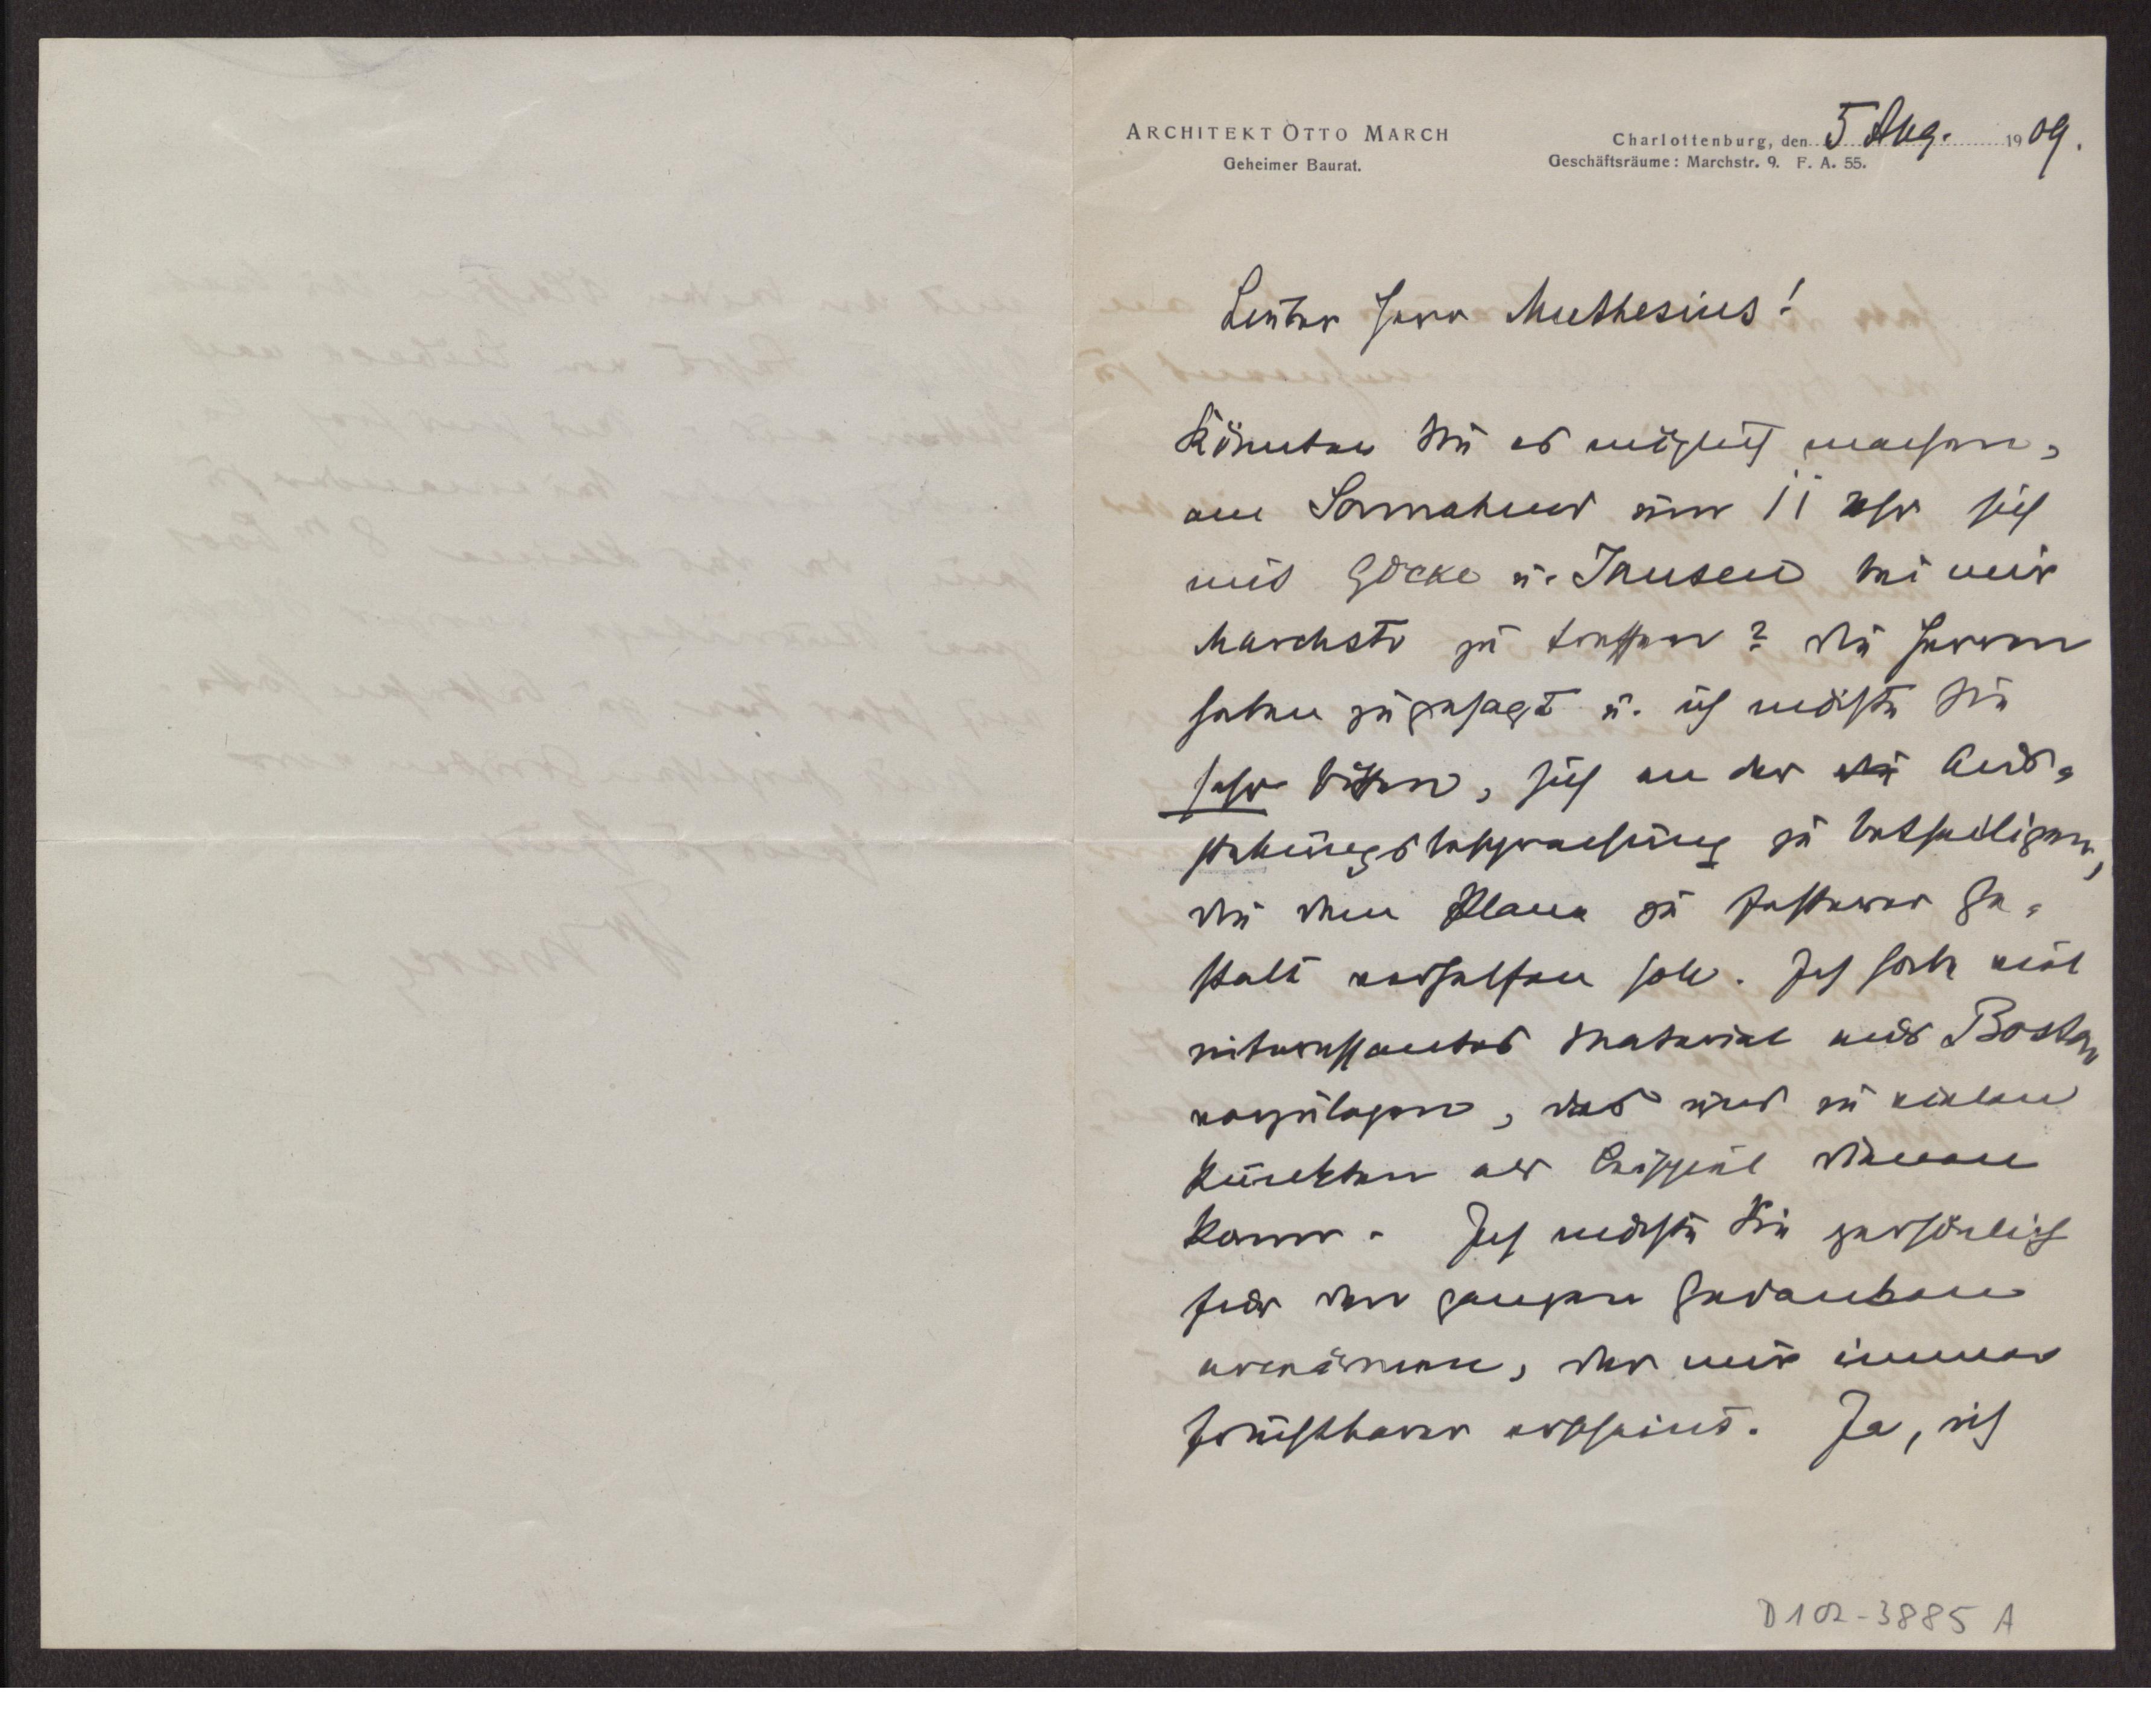 ARCHITEKT OTTO MARCH
Geheimer Baurat.
Charlottenburg, den 5 Aug. 1909.
Geschäftsräume: Marchstr. 9. F. A. 55.
Lieber Herr Muthesius!
Könnten Sie es möglich machen,
am Sonnabend um 11 Uhr sich
mit Göcke u. Jansen bei mir
Marchstr zu treffen? Die Herren
haben zugesagt u. ich möchte Sie
sehr bitten, sich an der Aus-
stellungsbesprechung zu betheiligen,
die dem Plane zu festerer Ge-
stalt verhelfen soll. Ich habe viel
interessantes Material aus Boston
vorzulegen, das uns in vielen
Punkten als Beispiel dienen
kann. Ich möchte Sie persönlich
für den ganzen Gedanken
erwärmen, der mir immer
fruchtbarer erscheint. Ja, ich
D102-3885 A